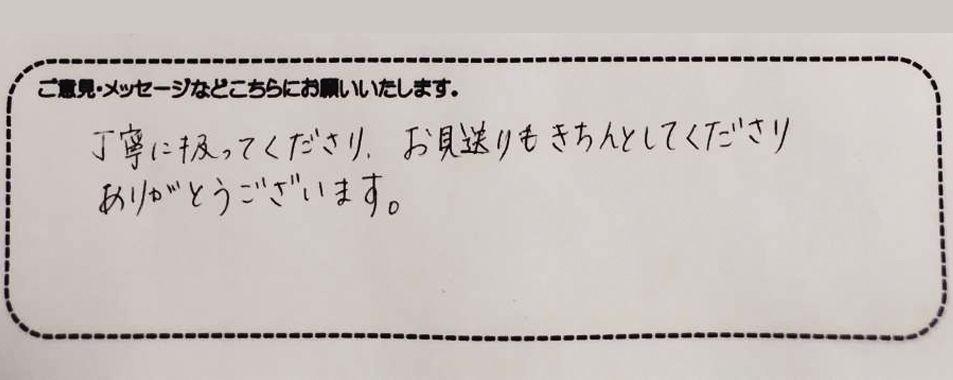 ご意見・メッセージなどこちらにお願いいたします。
丁寧に扱ってくださり、お見送りもきちんとしてくださり
ありがとうございます。